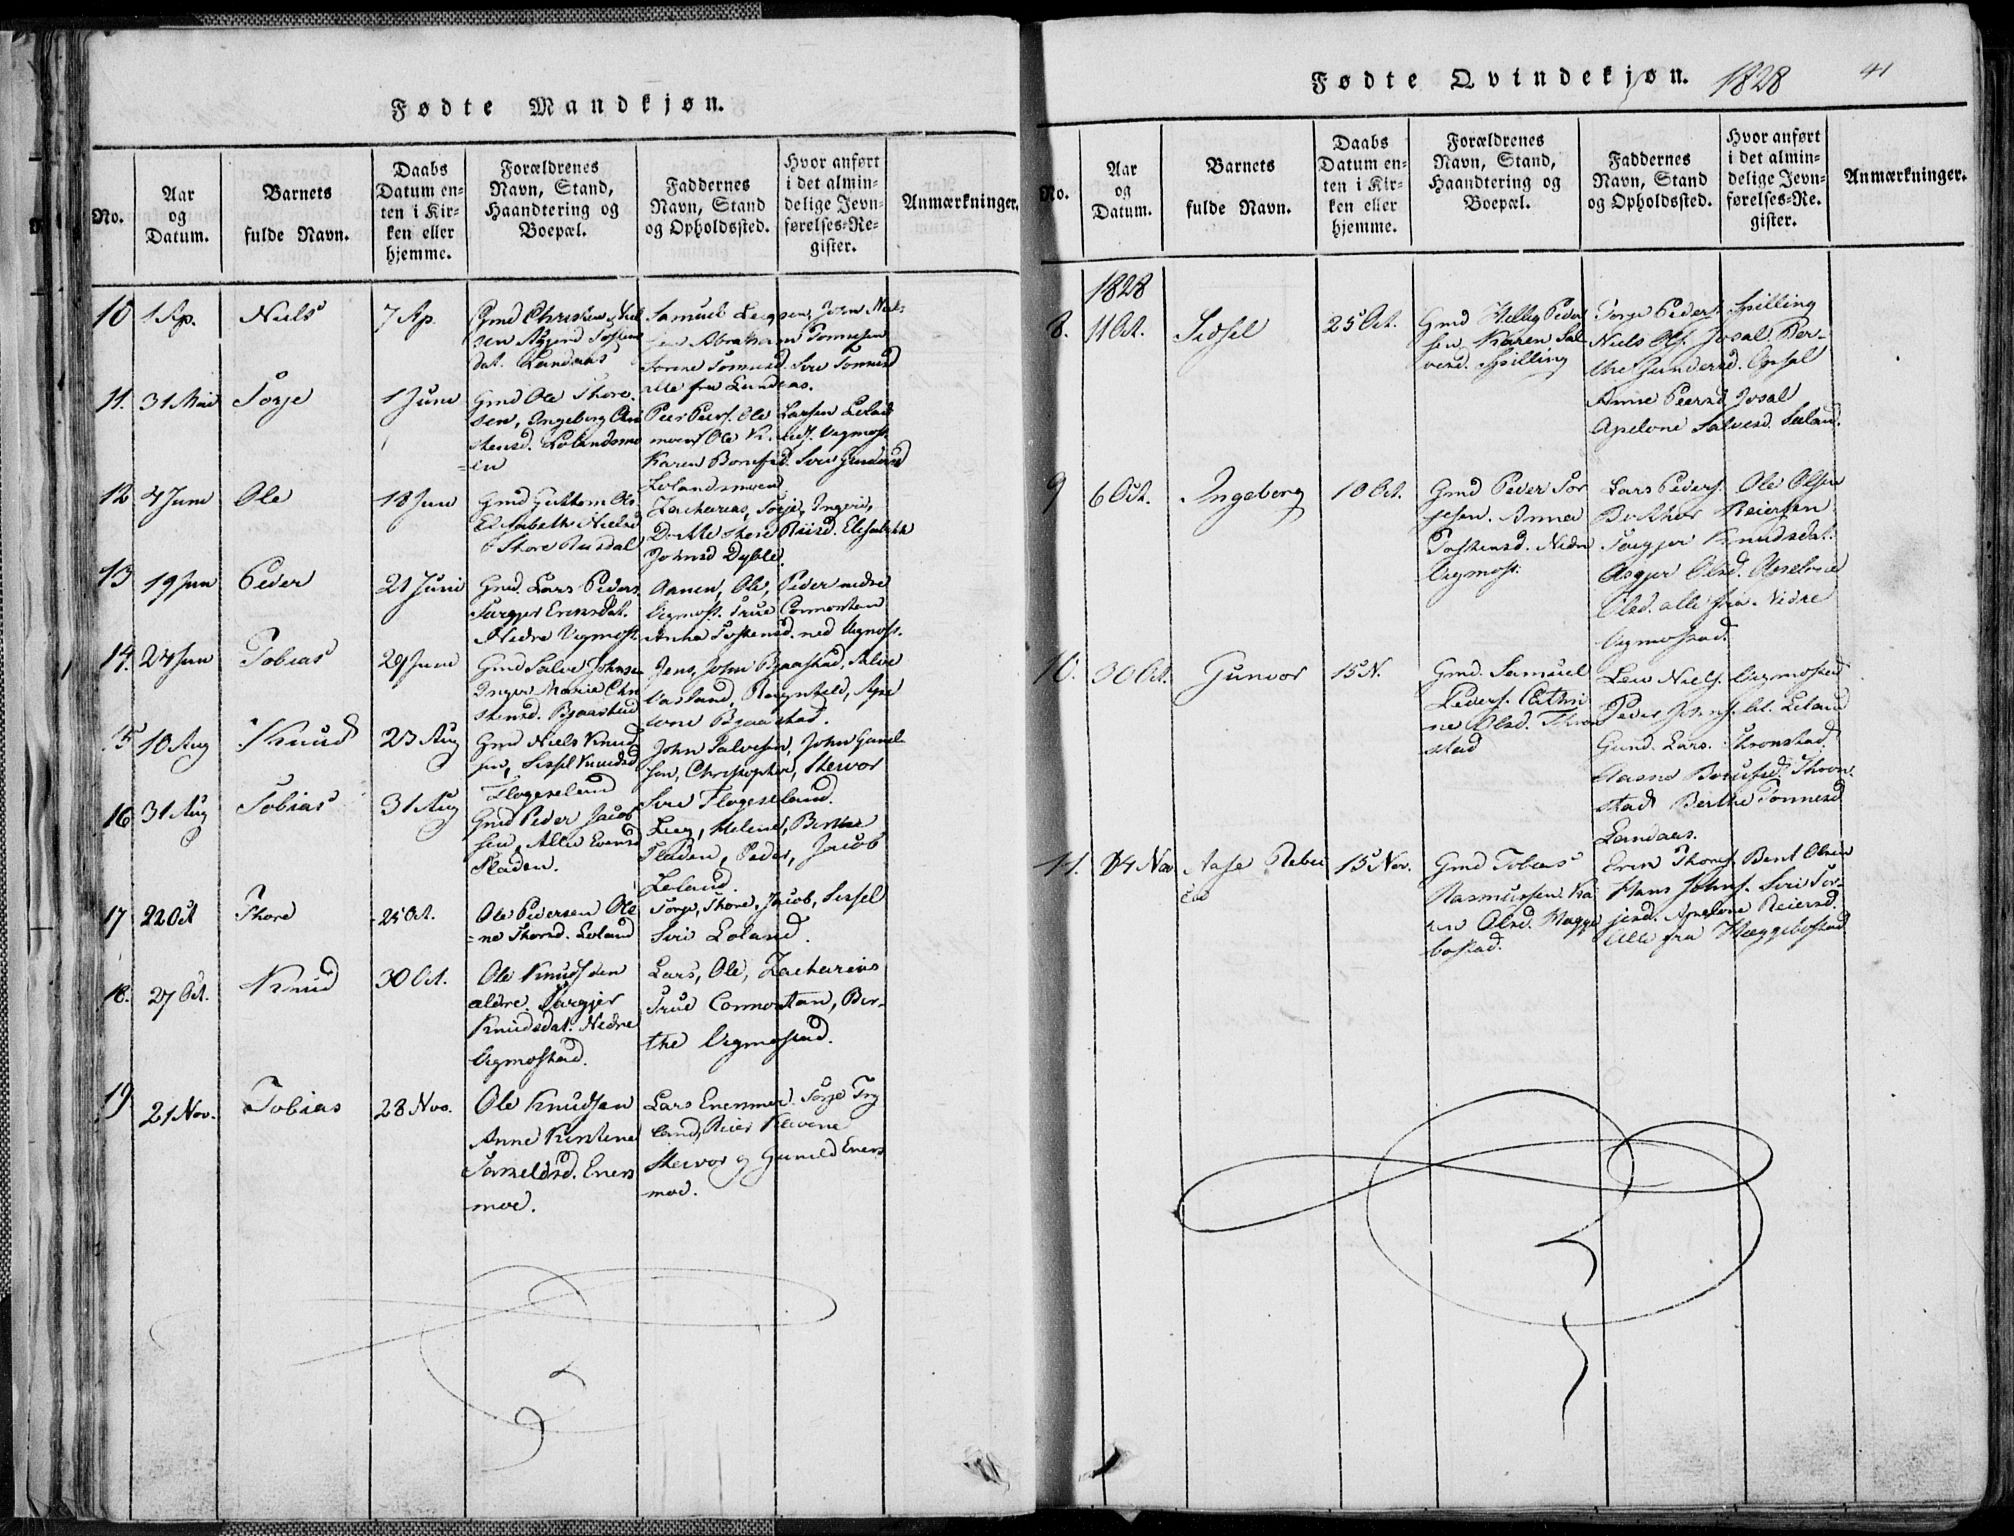 Fødte Mandkjøn.
No.
Aar
og
Datum.
Barnets
fulde Navn.
Daabs
Datum en-
ten i Kir-
ken eller
hjemme.
Forældrenes
Navn, Stand,
Haandtering og
Boepæl.
Faddernes
Navn, Stand
og Opholdssted.
Hvor anført
i det almin-
delige Jevn-
førelses-Re-
gister.
Anmærkninger.
10
1 Ap.
Niels
7 Ap.
Landaas
Samuel
Abraham Tønnesen
alle fra Landaas.
11.
31 Mai
Torje
1 Juni
Gmd Ole Thore-
sen, Ingeborg Chri
stensd. Lølandsmo
=en
Peer Peers. Ole Larsen
Lølandsmoen
12
4 Juni
Ole
18 Juni
Gmd Guttorm Ols.
Elisabeth Nielsd
Store Riisdal
Zacharias, Torje, Ingerid,
Dorthe store Riisd. Elisabeth
13
19 Jun
Peder
21 Juni
Gmd. Lars Peders.
Nedre Vegmost.
Aanen, Ole, Peder nedre
Vegmost. True
Anna Tostensd. ned Vegmost.
14.
24 Jun
Tobias
29 Juni
Gmd Salve Johnse
Inger Marie Chri
stensd. Bjaastad
Jens, John Bjaastad, Salve
Vasland, Ragnhild, Axe
lone Bjaastad.
15
10 Aug
Knud
23 Aug
Gmd Niels Knud
sen, Sissel Knudsd
Flogeseland
John Salvesen, John Gunel-
sen, Christopher, Steivor
Siri Flogeseland.
16
31 Aug
Tobias
31 Aug
Gmd Peder Jacob
sen, Allis Evensd
Pladen.
Leeg, Helene, Berthe
Pladen, Peder, Jacob
Leland.
17
22 Oct
Thore
25 Oct.
Ole Pedersen Ole
=ne Thorsd. Løland
Torje, Thore, Jacob, Sissel
Siri Løland.
18.
27 Oct.
Knud
30 Oct.
Ole Knudsen
ældre. Sørgjer
Knudsdat. Nedre
Vegmostad.
Lars, Ole, Zacharias
True Cormontan, Ber-
the Vegmostad.
19
21 Nov.
Tobias
28 Nov.
Ole Knudsen
Anne Kirstene
Eners
moe.
Lars Enersmoe. Torje Try
land, Reier Klevene
Steivor og Gunild Eners
moe.
Fødte Qvindekjøn. 1828
41
No.
Aar
og
Datum.
Barnets
fulde Navn.
Daabs
Datum en-
ten i Kir-
ken eller
hjemme.
Forældrenes
Navn, Stand,
Haandtering og
Boepæl.
Faddernes
Navn, Stand
og Opholdssted.
Hvor anført
i det almin-
delige Jevn-
førelses-Re-
gister.
Anmærkninger.
1828
8.
11 Oct.
Sidsel
25 Oct.
Gmd Peder
sen Karen Sal
vesd. Spilling
Torje Peders. Spilling
Niels Ols. Josal. Ber-
the Gundersd. Opsal
Anne Peersd Josal
Apelone Salvesd. Seland.
9
6 Oct.
Ingeborg
10 Oct.
Gmd Peder Tor
jesen. Anna
Tostensd. Nedre
Vegmost.
Lars Peders. Ole Olsen
Reiersen
Knudsdat.
Asgjer Olsd. Apelone
Olsd. alle fra Nedre
Vegmostad.
10.
30 Oct.
Gunvor
15 N.
Gmd. Samuel
Peders. Cathri
ne Olsd. Thron
stad
Niels. Vegmostad
Peder Leland
Gund. Lars. Thronstad
Thron-
stad Berthe Tønnesd
Landaas.
11.
14 Nov
Aase Rebe
cca
15 Nov.
Gmd Tobias
Rasmussen. Ka
ren Olsd. Hægge
bostad.
Eren Thores. Bent Olsen
Hans Johns. Siri Tor-
jesd. Apelone Reiersd.
Alle fra Hæggebostad